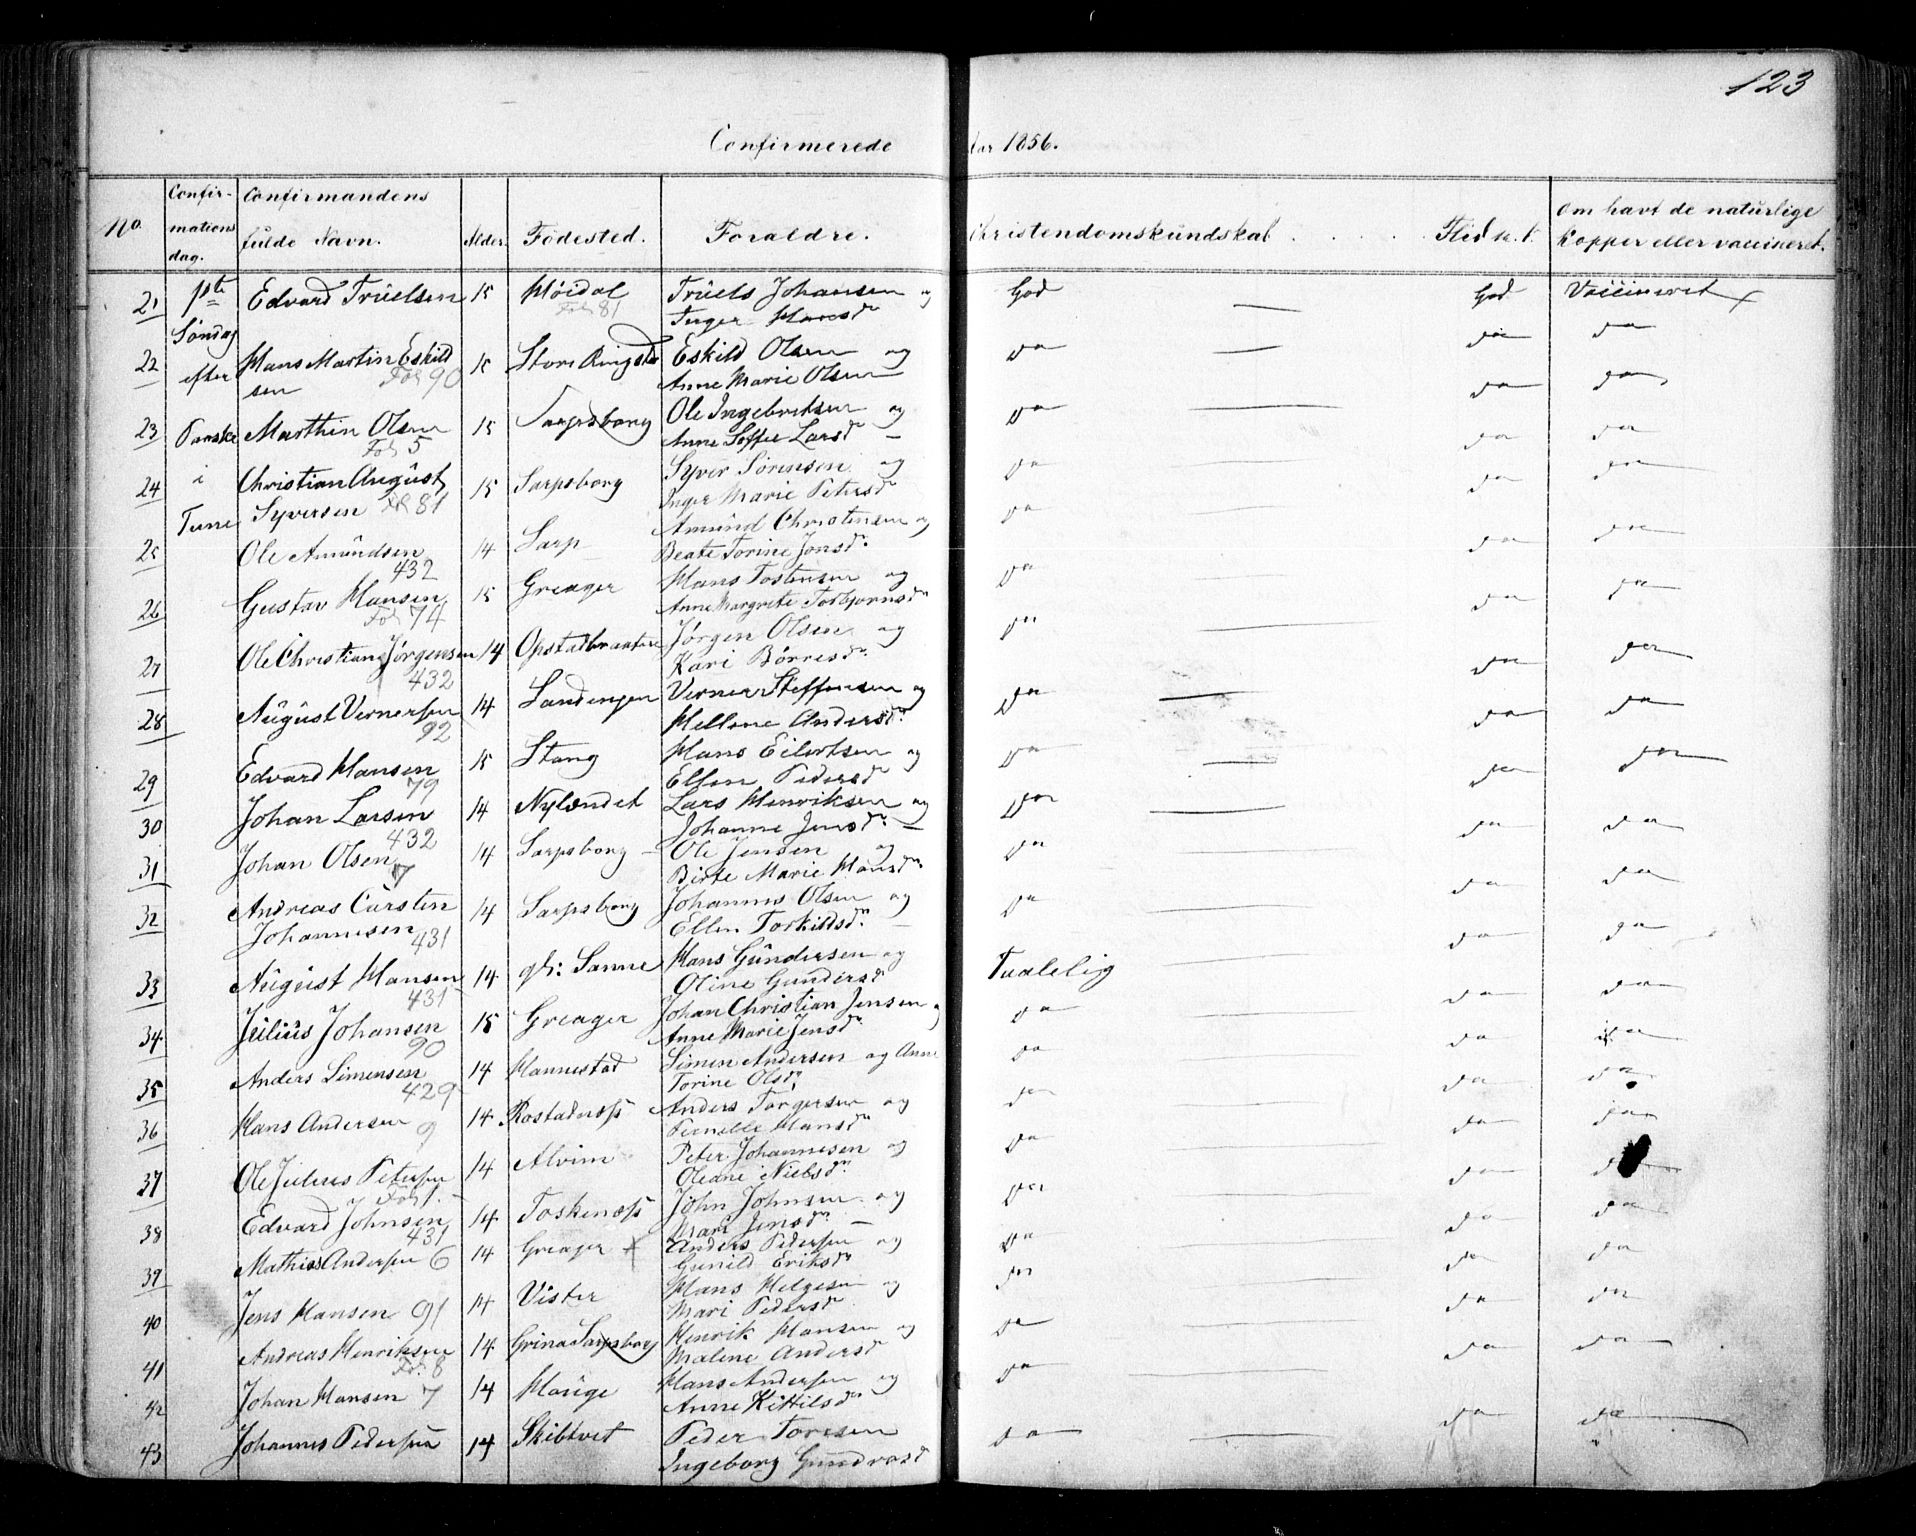 123
Confirmerede Aar 1856.
No. Confirmations dag. Confirmandens fulde Navn. Alder. Fødested. Forældre. Christendomskundskab . . . . . Flid m. v. Om havt de naturlige Kopper eller vaccineret.
21 1ste Edvard Truelsen 15 Høidal Truels Johansen og God — God Vaccineret
Fol 81 Inger Hansdr
Søndag
22 efter Hans Martin Eskild 15 Store Ringstad Eskild Olsen og Do — Do Do
sen Fol 90 Anne Marie Olsen
23 Paaske Marthin Olsen 15 Sarpsborg Ole Ingebretsen og Do — Do Do
Fol 5 Anne Soffie Larsdr
24 i Christian August 15 Sarpsborg Syver Sørensen og Do — Do Do
Tune Syversen Fol 81 Inger Marie Petersdr
25 Ole Amundsen 14 Sarp Amund Christensen og Do — Do Do
432 Beate Torine Jonsdr
26 Gustav Hansen 15 Greager Hans Tostensen og Do — Do Do
Fol 74 Anne Margrete Torbjørnsdr
27 Ole Christian Jørgensen 14 Opstadbraaten Jørgen Olsen og Do — Do Do
432 Kari Børresdr
28 August Vernersen 14 Sandengen Verner Steffensen og Do — Do Do
92 Hellene Andersdr
29 Edvard Hansen 15 Stang Hans Eilertsen og Do — Do Do
79 Ellen Pedersdr
30 Johan Larsen 14 Nylændet Lars Henriksen og Do — Do Do
432 Johanne Jensdr
31 Johan Olsen 14 Sarpsborg Ole Jensen og Do — Do Do
7 Birte Marie Hansdr
32 Andreas Carsten 14 Sarpsborg Johannes Olsen og Do — Do Do
Johannesen 431 Ellen Torkildsdr
33 August Hansen 14 gl: Sanne Hans Gundersen og Taalelig — Do Do
431 Oline Gundersdr
34 Julius Johansen 15 Greager Johan Christian Jensen og Do — Do Do
90 Anne Marie Jensdr
35 Anders Simensen 14 Hannestad Simen Andersen og Anne Do — Do Do
429 Torine Olsdr
36 Hans Andersen 9 14 Rostadnæss Anders Torgersen og Do — Do Do
Pernille Hansdr
37 Ole Julius Petersen 14 Alvim Peter Johannesen og Do — Do Do
Fol 1 Oleane Nielsdr
38 Edvard Johnsen 14 Toskenæss John Johnsen og Do — Do Do
431 Mari Jensdr
39 Mathias Andersen 6 14 Greager Anders Pedersen og Do — Do Do
Gunild Eriksdr
40 Jens Hansen 91 14 Vister Hans Helgesen og Do — Do Do
Mari Pedersdr
41 Andreas Henriksen 14 Grina Sarpsborg Henrik Hansen og Do — Do Do
Fol. 8 Malene Andersdr
42 Johan Hansen 7 14 Hauge Hans Andersen og Do — Do Do
Anne Kittilsdr
43 Johannes Pedersen 14 Skibtvet Peder Toresen Do — Do Do
Ingeborg Gundrosdr